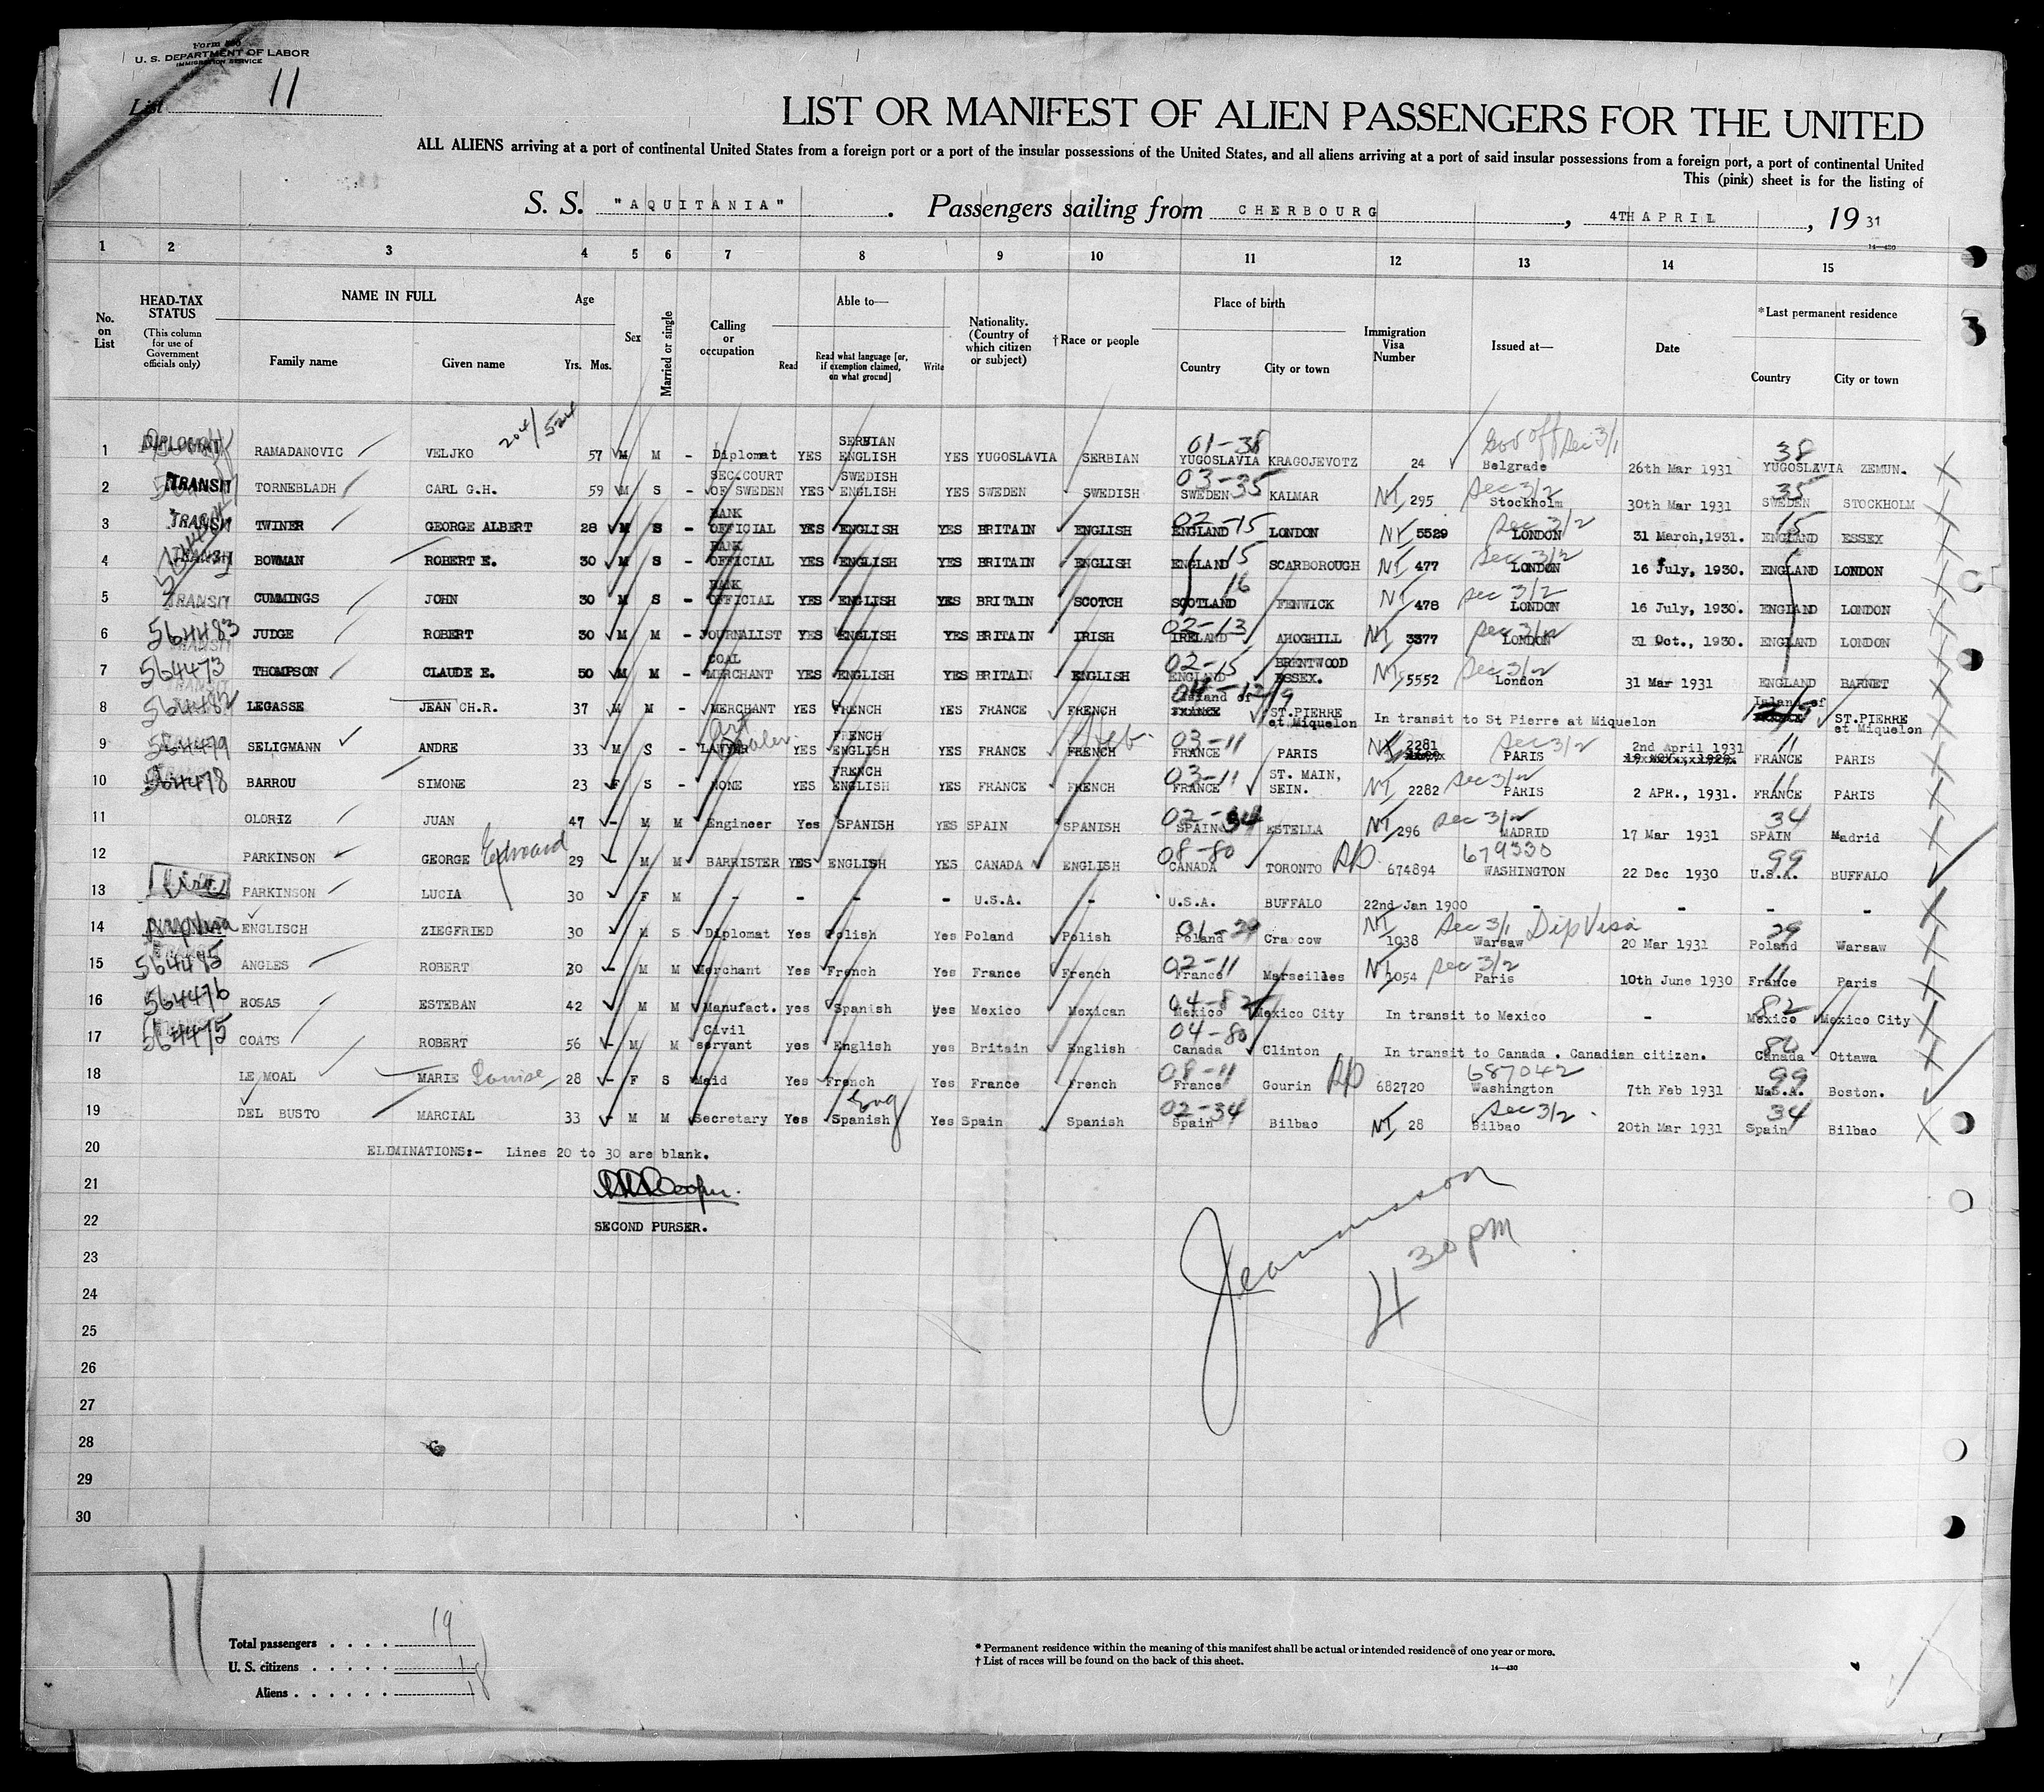 Form 500
U. S. DEPARTMENT OF LABOR
IMMIGRATION SERVICE
List 11
LIST OR MANIFEST OF ALIEN PASSENGERS FOR THE UNITED
ALL ALIENS arriving at a port of continental United States from a foreign port or a port of the insular possessions of the United States, and all aliens arriving at a port of said insular possessions from a foreign port, a port of continental United
This (pink) sheet is for the listing of
S. S. "AQUITANIA". Passengers sailing from CHERBOURG, 4TH APRIL, 19 31
14—420
1 2 3 4 5 6 7 8 9 10 11 12 13 14 15
No. on List
HEAD-TAX STATUS (This column for use of Government officials only)
NAME IN FULL
Family name Given name
Age
Yrs. Mos.
Sex
Married or single
Calling or occupation
Able to—
Read
Read what language [or, if exemption claimed, on what ground]
Write
Nationality. (Country of which citizen or subject)
† Race or people
Place of birth
Country City or town
Immigration Visa Number
Issued at—
Date
* Last permanent residence
Country City or town
204/524
1 DIPLOMAT RAMADANOVIC VELJKO 57 M M - Diplomat YES SERBIAN ENGLISH YES YUGOSLAVIA SERBIAN 01-38 YUGOSLAVIA KRAGOJEVOTZ 24 Gov off Sec 3/1 Belgrade 26th Mar 1931 38 YUGOSLAVIA ZEMUN.
2 TRANSIT TORNEBLADH CARL G.H. 59 M S - SEC.COURT OF SWEDEN YES SWEDISH ENGLISH YES SWEDEN SWEDISH 03-35 SWEDEN KALMAR NI 295 Sec 3/2 Stockholm 30th Mar 1931 35 SWEDEN STOCKHOLM
3 TRANSIT TWINER GEORGE ALBERT 28 M S - BANK OFFICIAL YES ENGLISH YES BRITAIN ENGLISH 02-15 ENGLAND LONDON NI 5529 Sec 3/2 LONDON 31 March,1931. 15 ENGLAND ESSEX
4 TRANSIT BOWMAN ROBERT E. 30 M S - BANK OFFICIAL YES ENGLISH YES BRITAIN ENGLISH 15 ENGLAND SCARBOROUGH NI 477 Sec 3/2 LONDON 16 July, 1930. ENGLAND LONDON
5 TRANSIT CUMMINGS JOHN 30 M S - BANK OFFICIAL YES ENGLISH YES BRITAIN SCOTCH 16 SCOTLAND FENWICK NI 478 Sec 3/2 LONDON 16 July, 1930. ENGLAND LONDON
6 564483 TRANSIT JUDGE ROBERT 30 M M - JOURNALIST YES ENGLISH YES BRITAIN IRISH 02-13 IRELAND AHOGHILL NI 3377 Sec 3/2 LONDON 31 Oct., 1930. ENGLAND LONDON
7 564473 TRANSIT THOMPSON CLAUDE E. 50 M M - COAL MERCHANT YES ENGLISH YES BRITAIN ENGLISH 02-15 ENGLAND BRENTWOOD ESSEX. NI 5552 Sec 3/2 London 31 Mar 1931 ENGLAND BARNET
8 564482 LEGASSE JEAN CH.R. 37 M M - MERCHANT YES FRENCH YES FRANCE FRENCH Island of FRANCE ST.PIERRE et Miquelon In transit to St Pierre at Miquelon Island of ST.PIERRE et Miquelon
9 564479 SELIGMANN ANDRE 33 M S - LAWYER Art Dealer. YES FRENCH ENGLISH YES FRANCE FRENCH Heb. 03-11 FRANCE PARIS NI 2281 Sec 3/2 PARIS 2nd April 1931 11 FRANCE PARIS
10 564478 BARROU SIMONE 23 F S - NONE YES FRENCH ENGLISH YES FRANCE FRENCH 03-11 FRANCE ST. MAIN, SEIN. NI 2282 Sec 3/2 PARIS 2 APR., 1931. 11 FRANCE PARIS
11 OLORIZ JUAN 47 - M M Engineer Yes SPANISH YES SPAIN SPANISH 02-34 SPAIN ESTELLA NI 296 Sec 3/2 MADRID 17 Mar 1931 34 SPAIN Madrid
12 PARKINSON GEORGE Edward 29 - M M BARRISTER YES ENGLISH YES CANADA ENGLISH 08-80 CANADA TORONTO RP 674894 679330 WASHINGTON 22 Dec 1930 99 U.S.A. BUFFALO
13 PARKINSON LUCIA 30 - F M - - - - U.S.A. - U.S.A. BUFFALO 22nd Jan 1900 - - - -
14 ENGLISCH ZIEGFRIED 30 M S Diplomat Yes Polish Yes Poland Polish 01-29 Poland Cracow NI 1038 Sec 3/1 Dip Visa Warsaw 20 Mar 1931 29 Poland Warsaw
15 564485 ANGLES ROBERT 30 - M M Merchant Yes French Yes France French 02-11 France Marseilles NI 1054 Sec 3/2 Paris 10th June 1930 11 France Paris
16 564476 ROSAS ESTEBAN 42 M M Manufact. yes Spanish yes Mexico Mexican 04-82 Mexico Mexico City In transit to Mexico - 82 Mexico Mexico City
17 564475 COATS ROBERT 56 - M M Civil servant yes English yes Britain English 04-80 Canada Clinton In transit to Canada . Canadian citizen. 80 Canada Ottawa
18 LE MOAL MARIE Louise 28 - F S Maid Yes French Yes France French 08-11 France Gourin RP 682720 687042 Washington 7th Feb 1931 99 Boston.
19 DEL BUSTO MARCIAL 33 - M M Secretary Yes Spanish Eng Yes Spain Spanish 02-34 Spain Bilbao NI 28 Sec 3/2 Bilbao 20th Mar 1931 34 Spain Bilbao
20 ELIMINATIONS:- Lines 20 to 30 are blank.
21
22 SECOND PURSER.
23
4 30 PM
24
25
26
27
28
29
30
Total passengers . . . . 19
U. S. citizens . . . . . 1
Aliens . . . . . . 18
* Permanent residence within the meaning of this manifest shall be actual or intended residence of one year or more.
† List of races will be found on the back of this sheet.
14—420